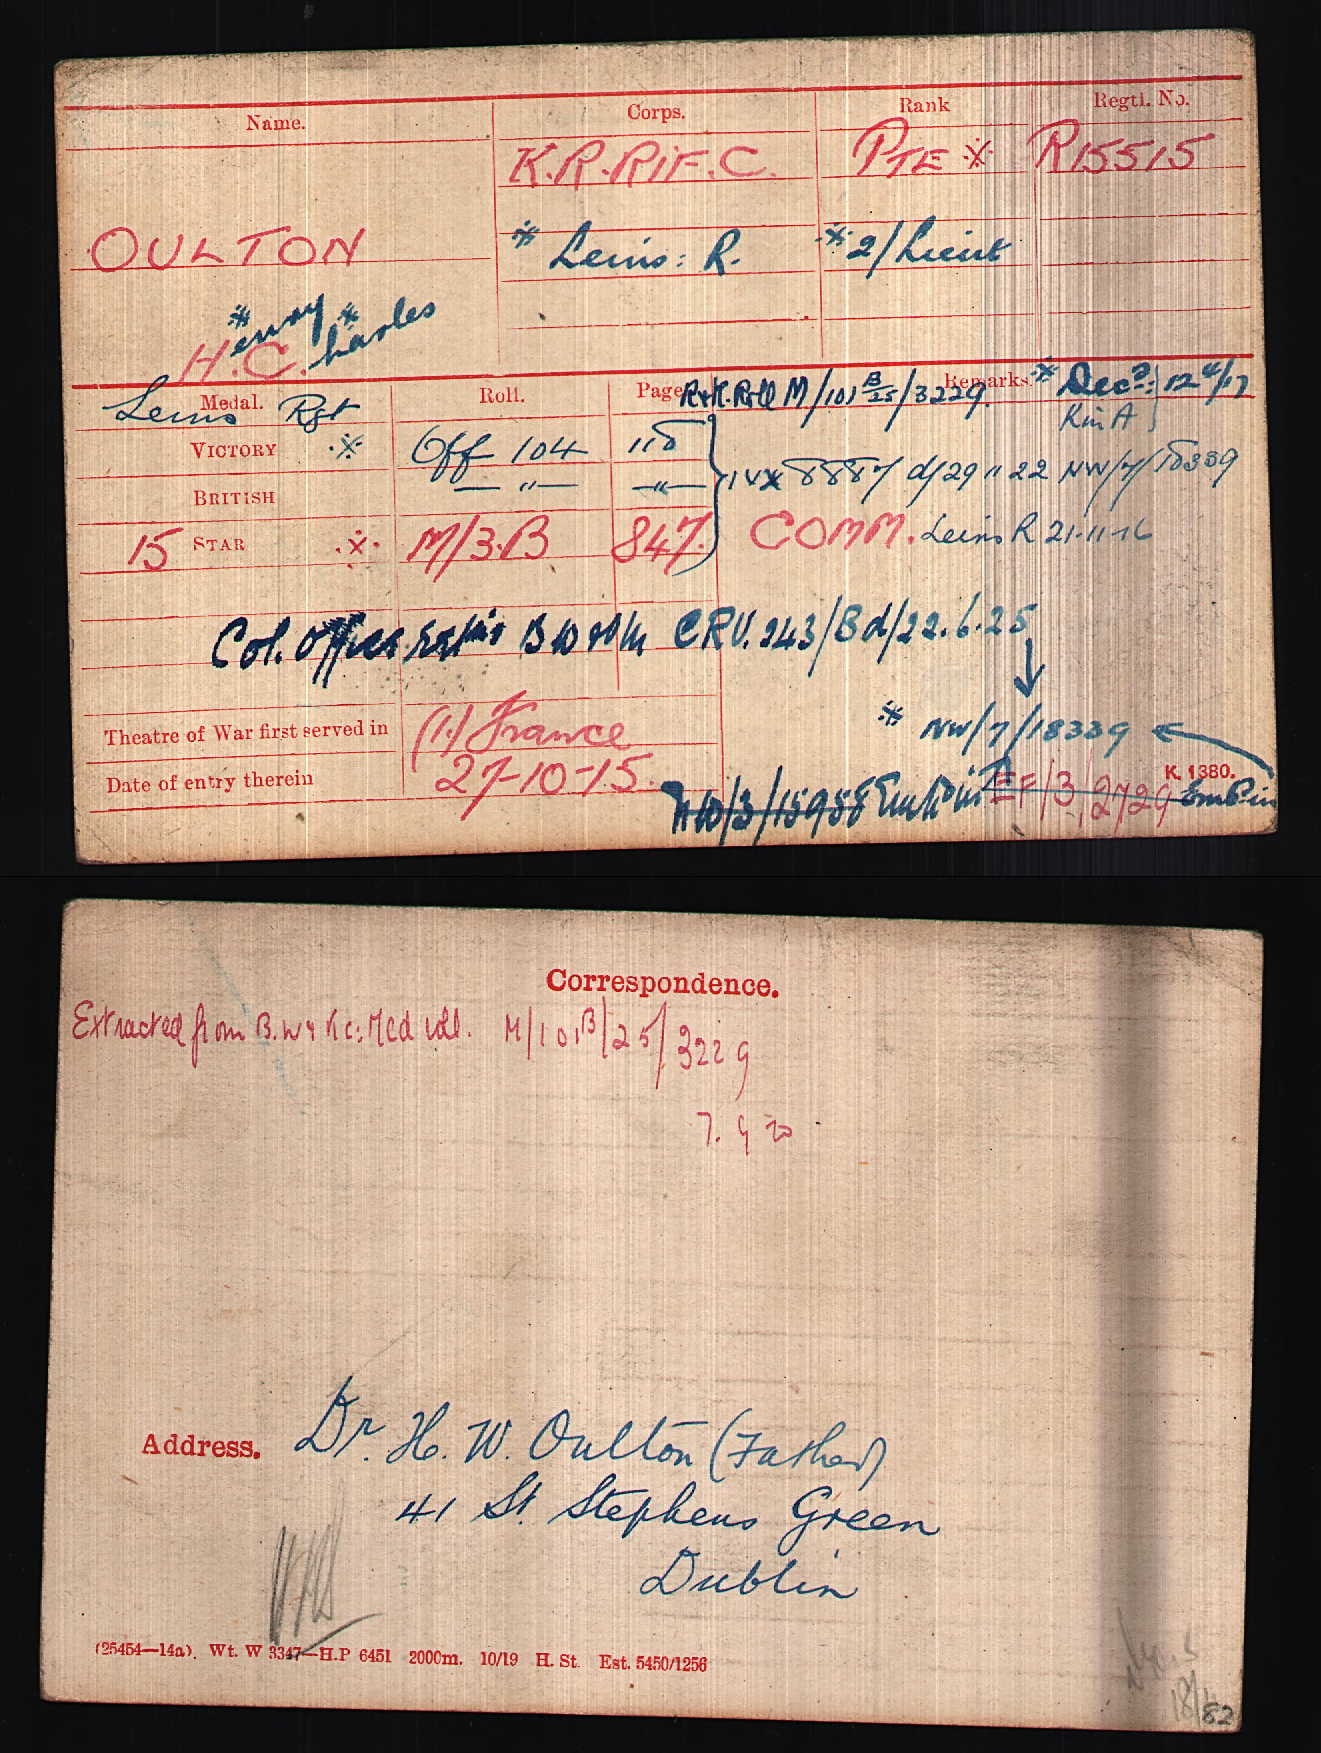 Name. Corps. Rank Regtl. No.
K.R.RIF.C. PTE ※ R15515
OULTON ※ Leins: R. ※ 2/Lieut
※ ※
H.enry C.harles
Leins Rgt
Medal. Roll. Page Remarks.
R & K. Roll M/101 B/25/3229 ※ Decd: 12 4/17
K in A
VICTORY ※ Off 104 118
BRITISH — " — — " —
IVX 8887 d/29 11 22 NW/7/18339
15 STAR ※ M/3.B 847. COMM. Leins R 21-11-16
Col. Office BW & VM CRV. 243/Bd/22.6.25
※ NW/7/18339
Theatre of War first served in (1) France
Date of entry therein 27-10-15.
K. 1380.
NW/3/15958 EF/3/2729
Correspondence.
Extracted from B.W & Vic: Med roll. M/101B/25/3229
7. 9 20
Address. Dr. H. W. Oulton (Father)
41 St. Stephens Green
Dublin
(25454—14a). Wt. W 3347—H.P 6451 2000m. 10/19 H. St. Est. 5450/1256
82